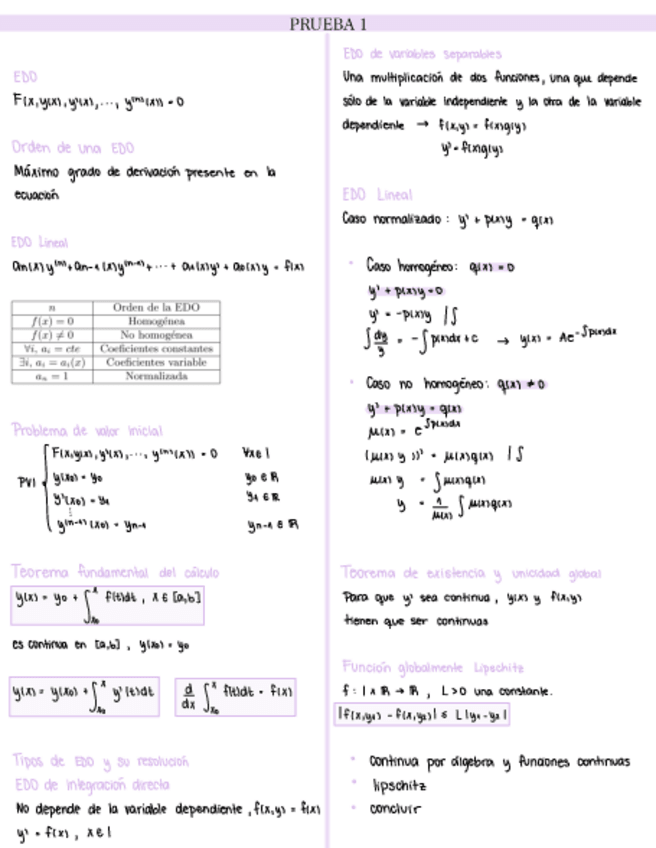 PRUEBA 1
EDO
F(x, y(x), y'(x), ..., y⁽ⁿ⁾(x)) = 0
Orden de una EDO
Máximo grado de derivación presente en la
ecuación
EDO Lineal
aₙ(x)y⁽ⁿ⁾ + aₙ₋₁(x)y⁽ⁿ⁻¹⁾ + ... + a₁(x)y' + a₀(x)y = f(x)
n Orden de la EDO
f(x) = 0 Homogénea
f(x) ≠ 0 No homogénea
∀i, aᵢ = cte Coeficientes constantes
∃i, aᵢ = aᵢ(x) Coeficientes variable
aₙ = 1 Normalizada
Problema de valor inicial
PVI
F(x, y(x), y'(x), ..., y⁽ⁿ⁾(x)) = 0 ∀x∈I
y(x₀) = y₀ y₀ ∈ ℝ
y'(x₀) = y₁ y₁ ∈ ℝ
⋮
y⁽ⁿ⁻¹⁾(x₀) = yₙ₋₁ yₙ₋₁ ∈ ℝ
Teorema fundamental del cálculo
y(x) = y₀ + ∫ₓ₀ˣ f(t)dt , x ∈ [a,b]
es continua en [a,b] , y(x₀) = y₀
y(x) = y(x₀) + ∫ₓ₀ˣ y'(t)dt
d/dx ∫ₓ₀ˣ f(t)dt = f(x)
Tipos de EDO y su resolución
EDO de integración directa
No depende de la variable dependiente , f(x,y) = f(x)
y' = f(x) , x∈I
EDO de variables separables
Una multiplicación de dos funciones, una que depende
sólo de la variable independiente y la otra de la variable
dependiente → f(x,y) = f(x)g(y)
y' = f(x)g(y)
EDO Lineal
Caso normalizado : y' + p(x)y = q(x)
• Caso homogéneo: q(x) = 0
y' + p(x)y = 0
y' = -p(x)y /∫
∫ dy/y = -∫ p(x)dx + c → y(x) = Ae^(-∫p(x)dx)
• Caso no homogéneo: q(x) ≠ 0
y' + p(x)y = q(x)
μ(x) = e^(∫p(x)dx)
(μ(x) y))' = μ(x)q(x) /∫
μ(x) y = ∫ μ(x)q(x)
y = 1/μ(x) ∫ μ(x)q(x)
Teorema de existencia y unicidad global
Para que y' sea continua , y(x) y f(x,y)
tienen que ser continuas
Función globalmente Lipschitz
f : I x ℝ → ℝ , L>0 una constante.
|f(x,y₁) - f(x,y₂)| ≤ L|y₁-y₂|
• Continua por álgebra y funciones continuas
• lipschitz
• concluir